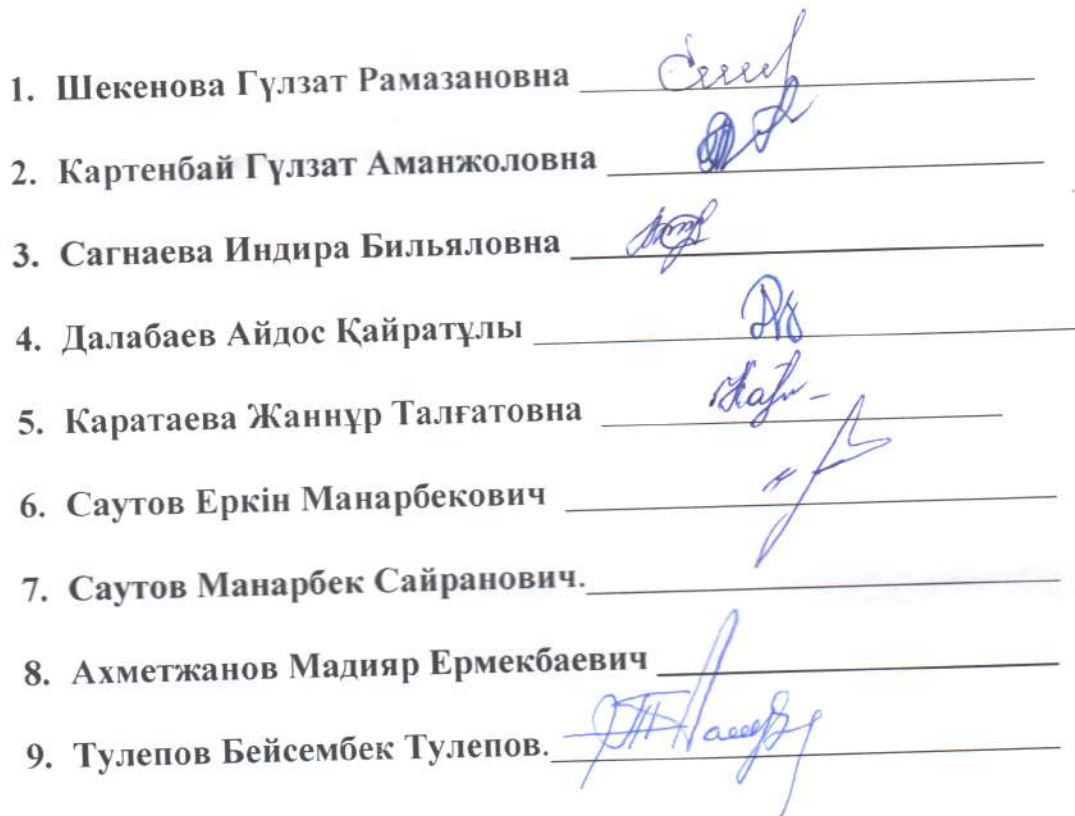 1. Шекенова Гүлзат Рамазановна
2. Картенбай Гүлзат Аманжоловна
3. Сагнаева Индира Бильяловна
4. Далабаев Айдос Қайратұлы
5. Каратаева Жаннұр Талғатовна
6. Саутов Еркін Манарбекович
7. Саутов Манарбек Сайранович.
8. Ахметжанов Мадияр Ермекбаевич
9. Тулепов Бейсембек Тулепов.